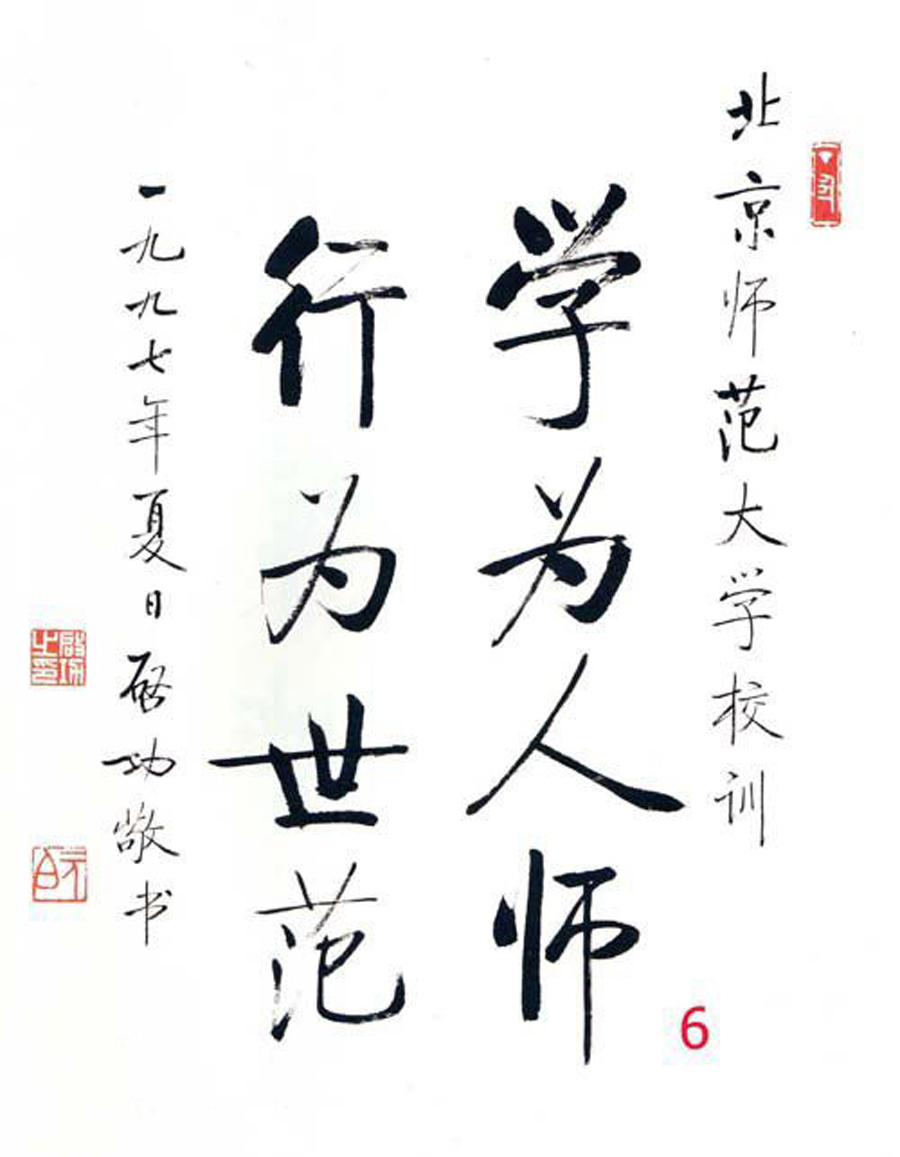 北京师范大学校训
学为人师
行为世范
一九九七年夏日启功敬书
启功之印
元白
6